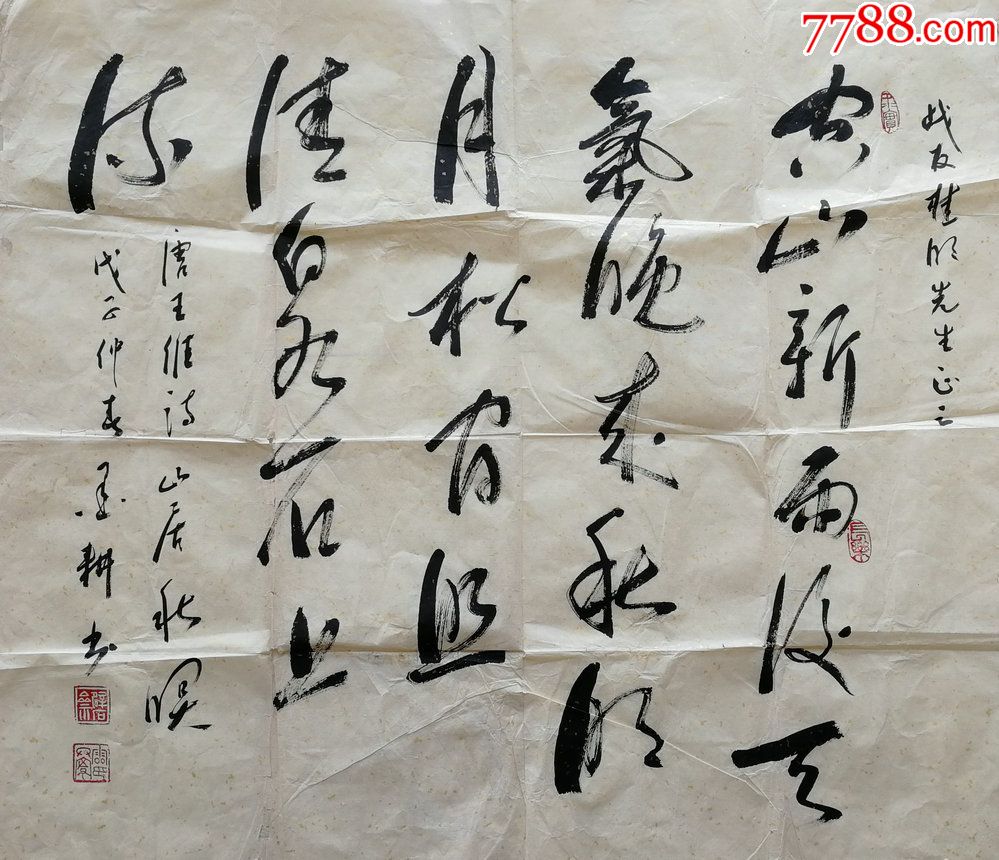 7788.com
战友桂明先生正之
空山新雨後天
氣晚来秋明
月松间照
清泉石上
流
唐王维诗 山居秋暝
戊子仲春 墨耕书